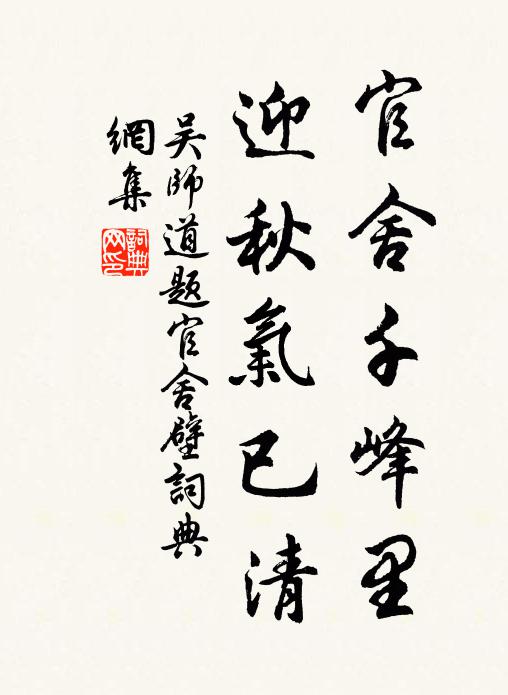 官舍千峰里
迎秋氣已清
吴師道题官舍壁詞典
網集
詞典網印